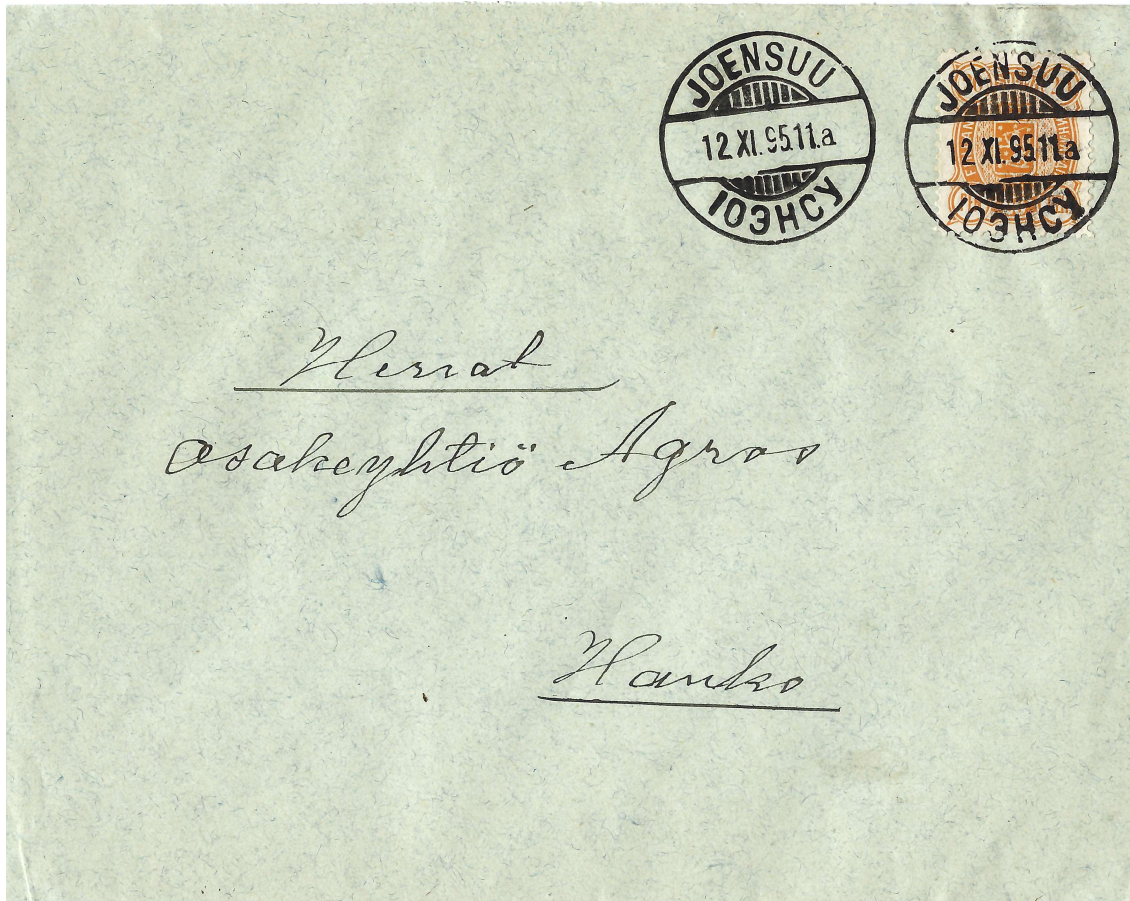 JOENSUU
12 XI.95.11.a
ІОЭНСУ
JOENSUU
12 XI.95.11.a
ІОЭНСУ
Herrat
Osakeyhtiö Agros
Hanko